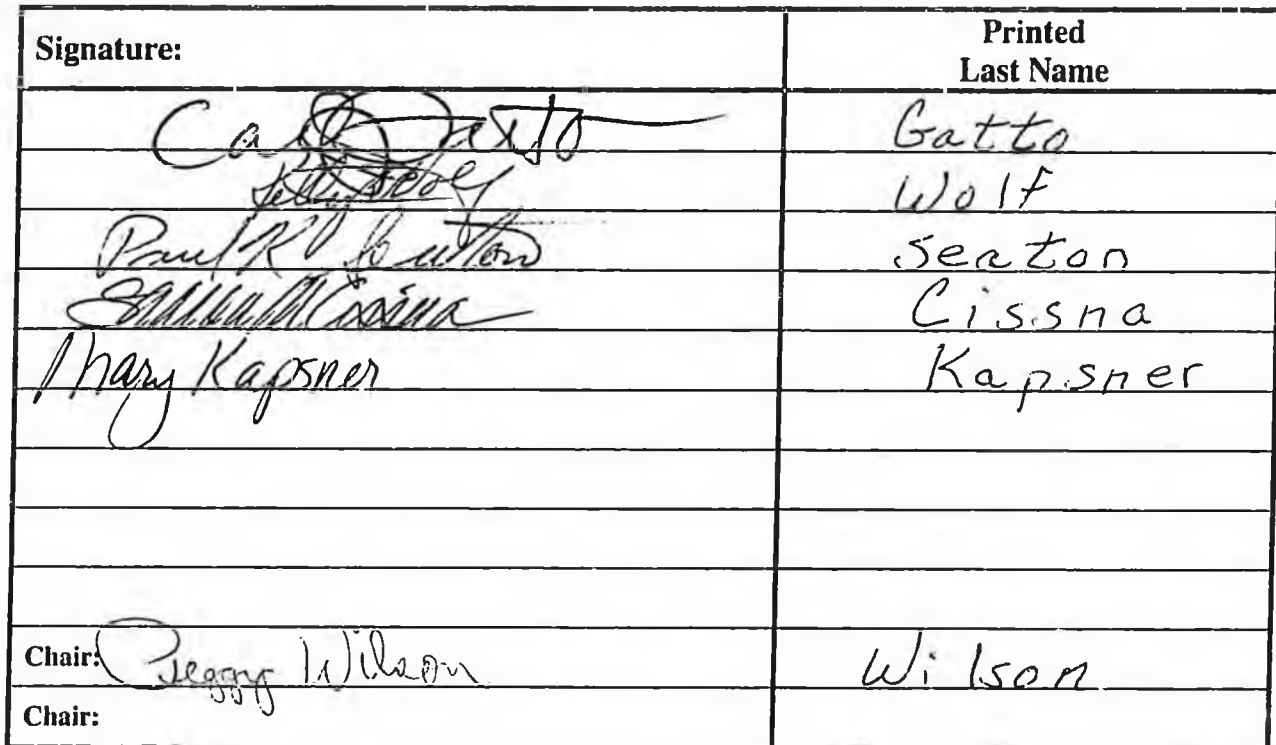 Signature: Printed
Last Name
Carl Gatto Gatto
Wolf
Paul K Seaton Seaton
Cissna Cissna
Mary Kapsner Kapsner
Chair: Peggy Wilson Wilson
Chair: